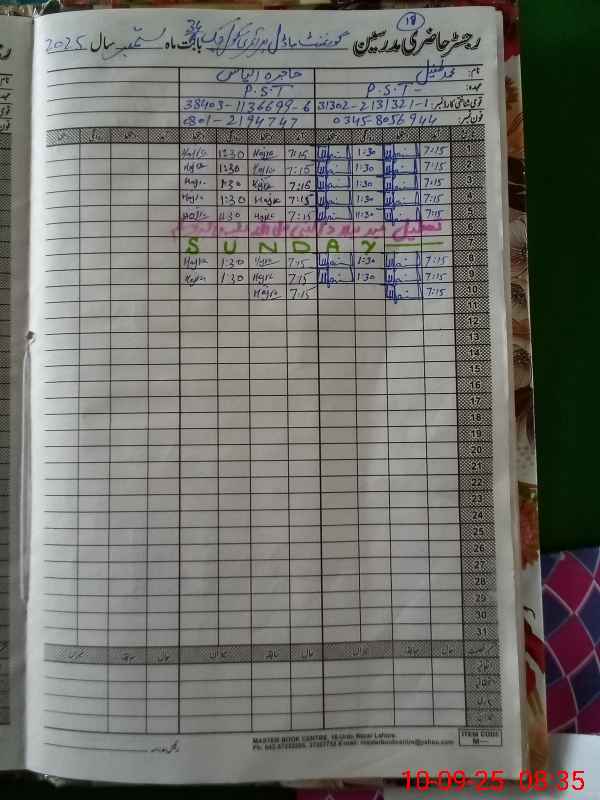 18
رجسٹر حاضری مدرسین گورنمنٹ ماڈل پرائمری سکول چک 36 بابت ماہ ستمبر سال 2025
نام: محمد طفیل حاجرہ الیاس
عہدہ: P.S.T P.S.T
قومی شناختی کارڈ نمبر: 31302-2131321-1 38403-1136699-6
فون نمبر: 0345-8056944 0301-2194747
1 7:15 1:30 7:15 Hajra 1:30 Hajra
2 7:15 1:30 7:15 Hajra 1:30 Hajra
3 7:15 1:30 7:15 Hajra 1:30 Hajra
4 7:15 1:30 7:15 Hajra 1:30 Hajra
5 7:15 11:30 7:15 Hajra 11:30 Hajra
6 تعطیل عید میلاد النبی صلی اللہ علیہ وآلہ وسلم
7 SUNDAY
8 7:15 1:30 7:15 Hajra 1:30 Hajra
9 7:15 1:30 7:15 Hajra 1:30 Hajra
10 7:15 7:15 Hajra
11
12
13
14
15
16
17
18
19
20
21
22
23
24
25
26
27
28
29
30
31
میزان سابقہ حال میزان سابقہ حال میزان سابقہ حال
اتفاقی
MASTER BOOK CENTRE, 16-Urdu Bazar Lahore.
ITEM CODE
M—
10-09-25 08:35